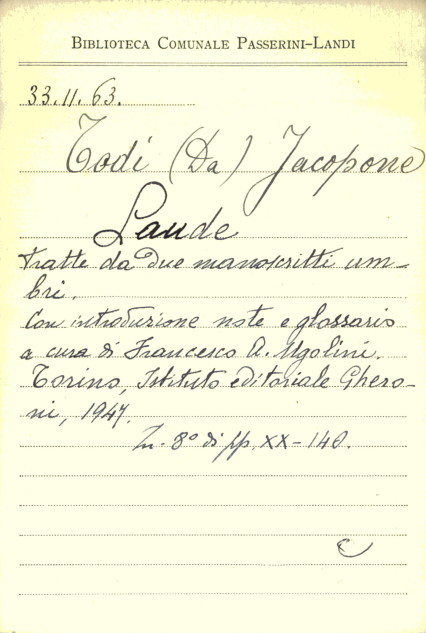 BIBLIOTECA COMUNALE PASSERINI-LANDI
33.11.63.
Todi (Da) Jacopone
Laude
Tratte da due manoscritti um-
bri.
Con introduzione note e glossario
a cura di Francesco A. Ugolini.
Torino, Istituto editoriale Ghero-
ni, 1947.
In-8° di pp. XX-140.